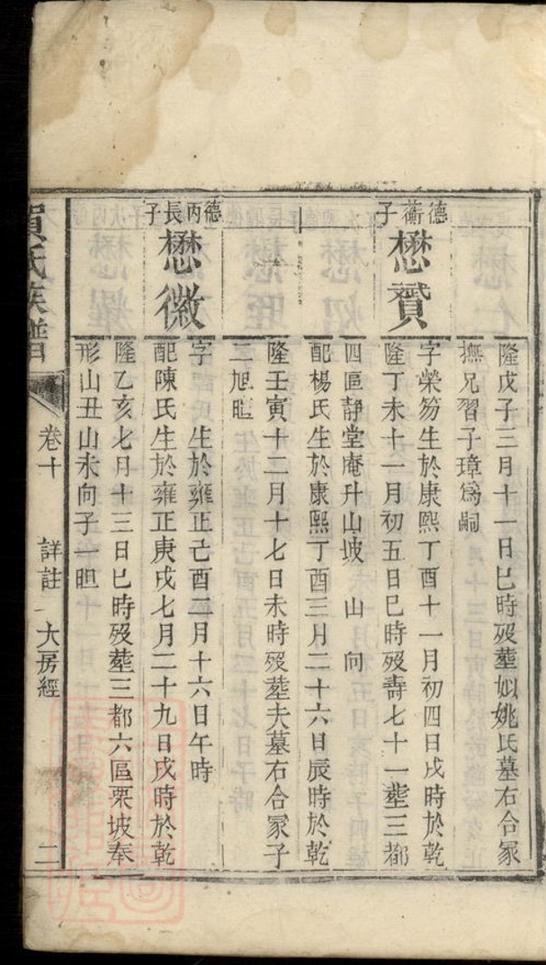 隆戊子三月十一日巳時歿塟姒姚氏墓右合冢
撫兄習子璋爲嗣
德衡子
懋賮
字榮笏生於康熙丁酉十一月初四日戌時於乾
隆丁未十一月初五日巳時歿壽七十一塟三都
四區靜堂庵升山坡 山 向
配楊氏生於康熙丁酉三月二十六日辰時於乾
隆壬寅十二月十七日未時歿塟夫墓右合冢子
二旭暄
德丙長子
懋徽
字 生於雍正己酉二月十六日午時
配陳氏生於雍正庚戌七月二十九日戌時於乾
隆乙亥七月十三日巳時歿塟三都六區栗坡奉
形山丑山未向子一
賀氏族譜
卷十
詳註
大房經
二